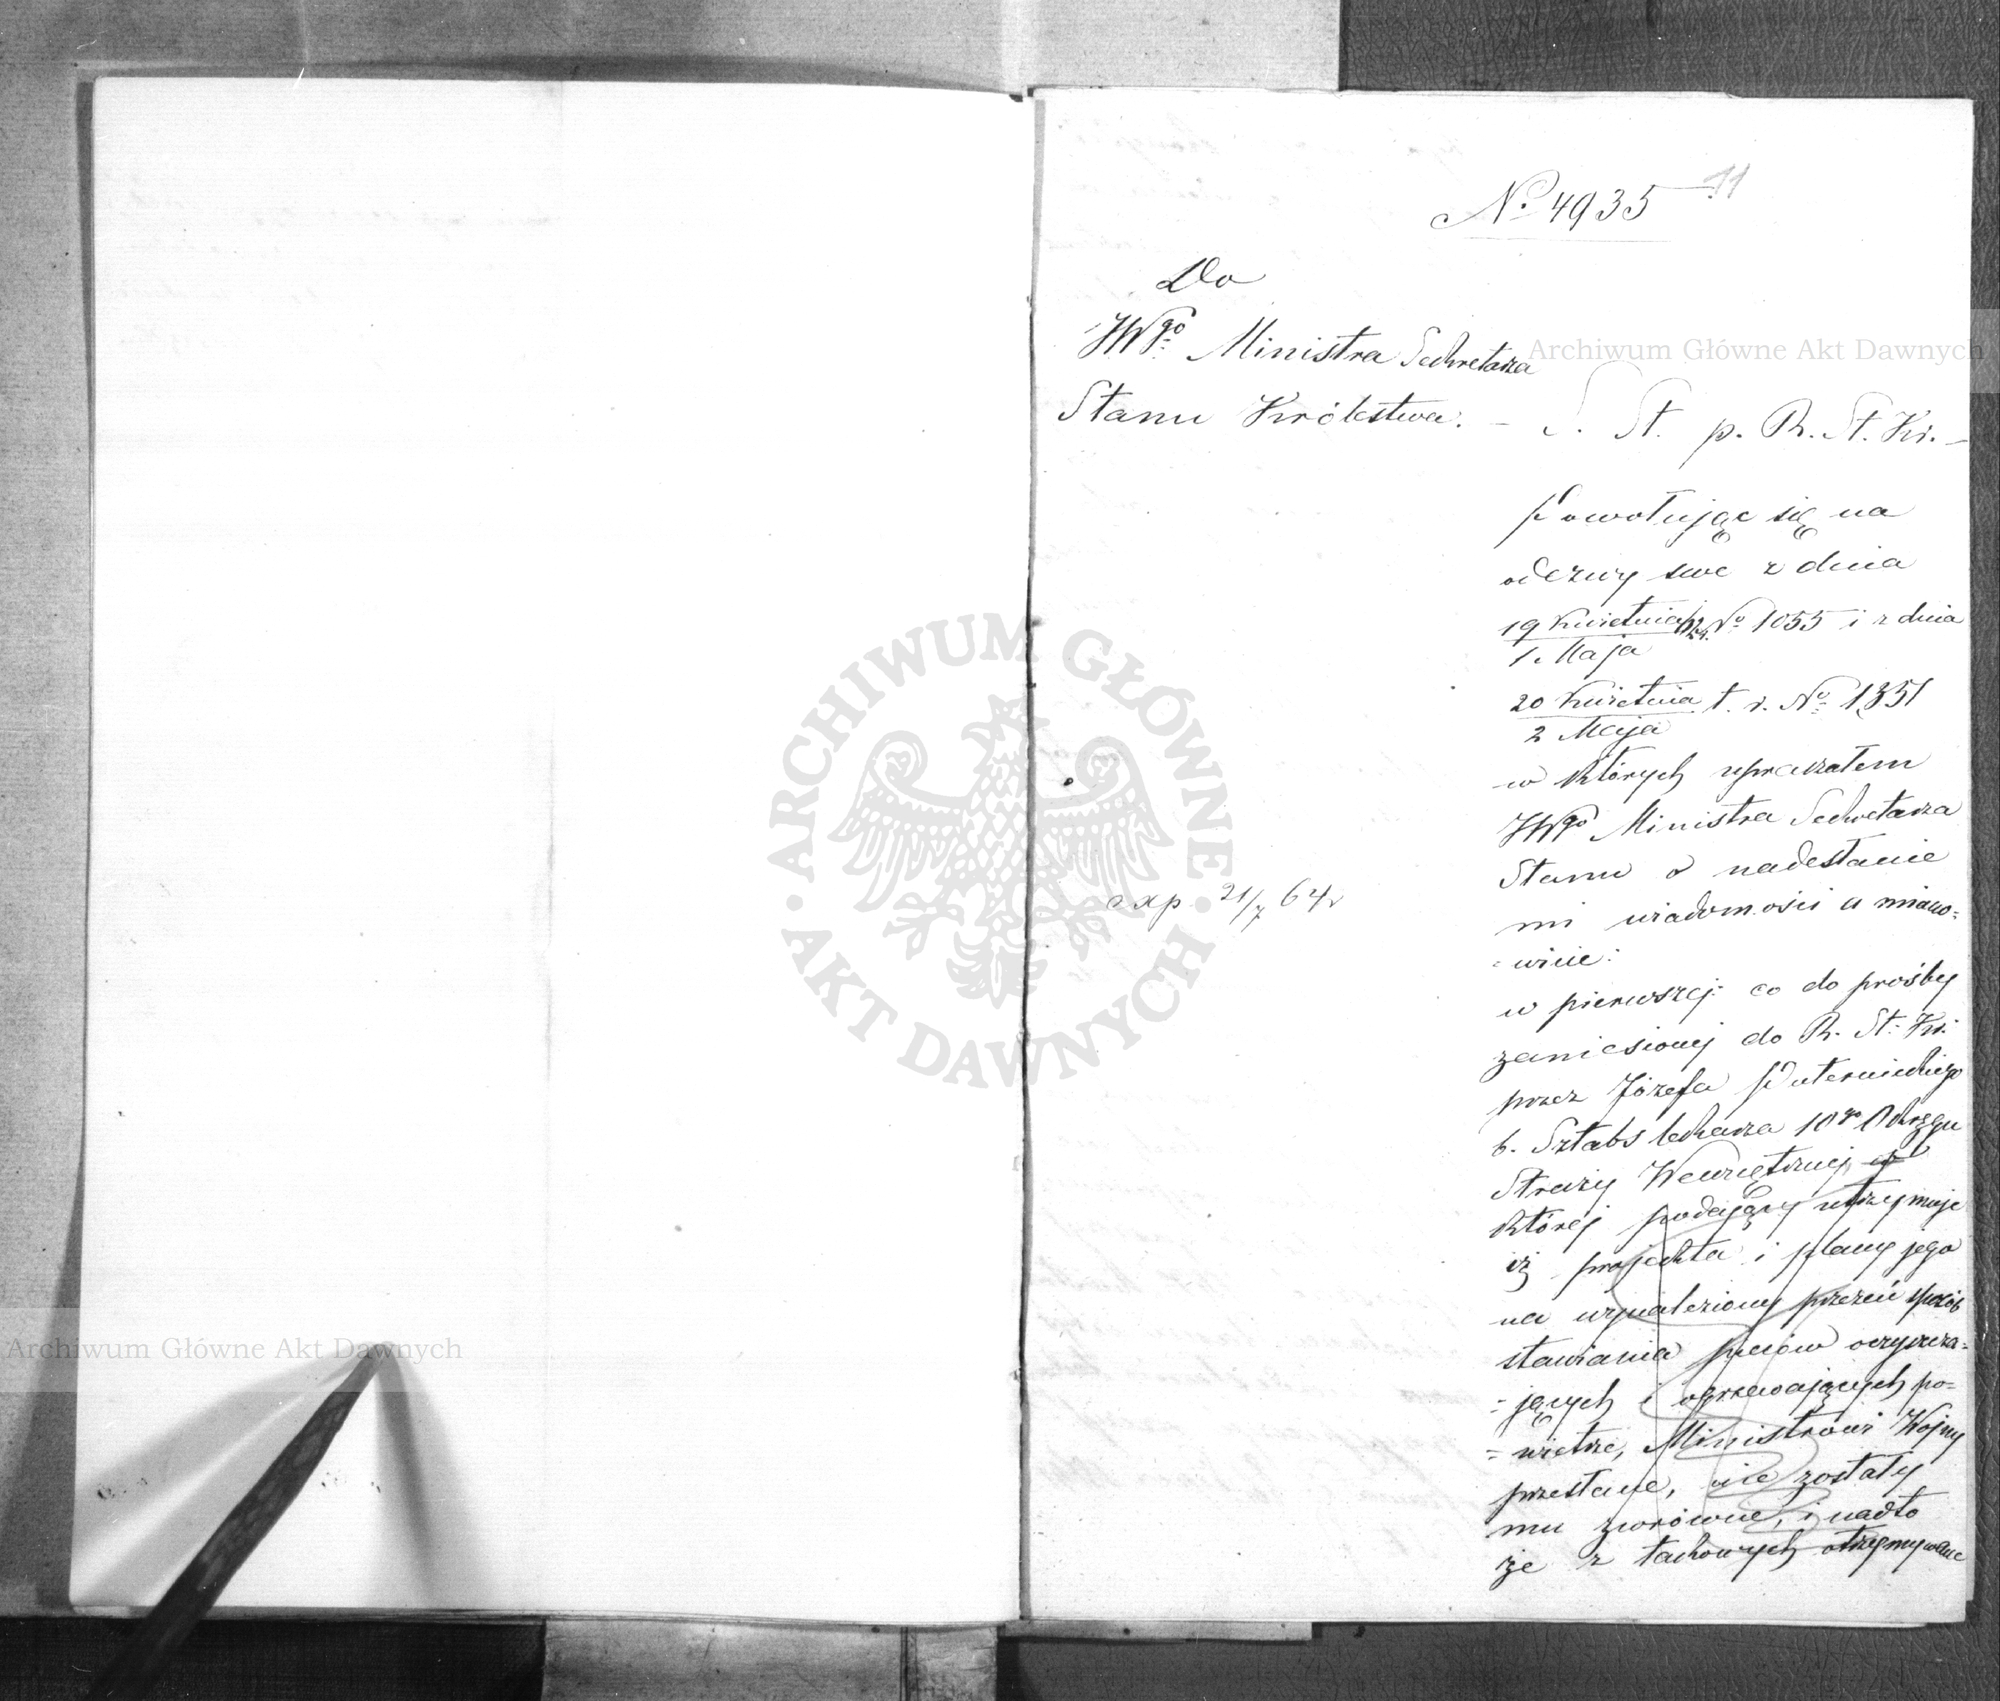 11
No. 4935
Do
JWgo Ministra Sekretarza
Stanu Królestwa. — S. St. p. R. St. Kr. —
Powołując się na
odezwy swe z dnia
19 Kwietnia No 1055 i z dnia
1. Maja
20 Kwietnia t. r. No 1351
2 Maja
w których upraszałem
JWgo Ministra Sekretarza
Stanu o nadesłanie
exp. 21/7 64 r
mi wiadomości a miano=
=wicie:
w pierwszej: co do prośby
zaniesionej do R. St. Kr.
przez Józefa
b. Sztabs lekarza 10go Okręgu
Straży Wewnętrznej, w
której podający utrzymuje
iż projekta i plany jego
na wynaleziony przezeń sposób
stawiania pieców oczyszcza=
=jących i ogrzewających po=
=wietrze, Ministrowi Wojny
przesłane, nie zostały
mu zwrócone, i nadto
że z takowych otrzymywane
Archiwum Główne Akt Dawnych
Archiwum Główne Akt Dawnych
ARCHIWUM GŁÓWNE • AKT DAWNYCH •